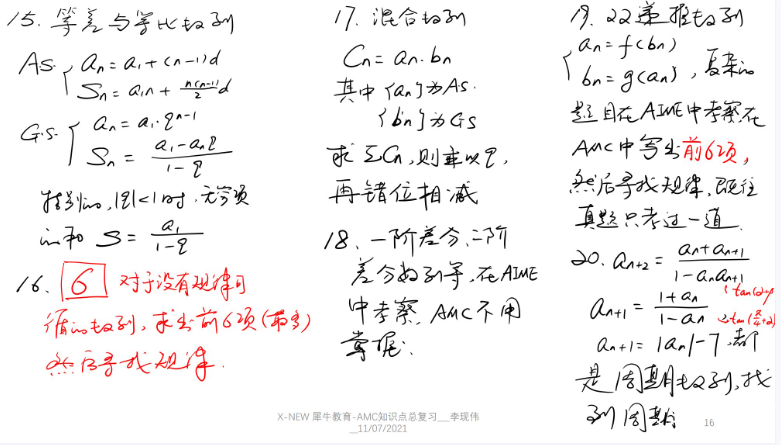 15. 等差与等比数列
AS { an = a1 + (n-1)d
Sn = a1n + n(n-1)/2 d
G.S { an = a1·q^(n-1)
Sn = (a1-anq)/(1-q)
特别的, |q|<1时, 无穷项
的和 S = a1/(1-q)
16. 6 对于没有规律可
循的数列, 求出前6项(最多)
然后寻找规律.
17. 混合数列
Cn = an·bn
其中{an}为AS.
{bn}为GS
求ΣCn, 则乘以q,
再错位相减
18. 一阶差分、二阶
差分数列等, 在AIME
中考察, AMC不用
掌握.
19. 22递推数列
{ an = f(bn)
bn = g(an) , 复杂的
题目在AIME中考察在
AMC中写出前6项,
然后寻找规律. 既往
真题只考过一道.
20. an+2 = (an+an+1)/(1-anan+1)
an+1 = (1+an)/(1-an)
an+1 = |an|-7, 都
是周期数列, 找
到周期
X-NEW 犀牛教育-AMC知识点总复习__李现伟
__11/07/2021
16